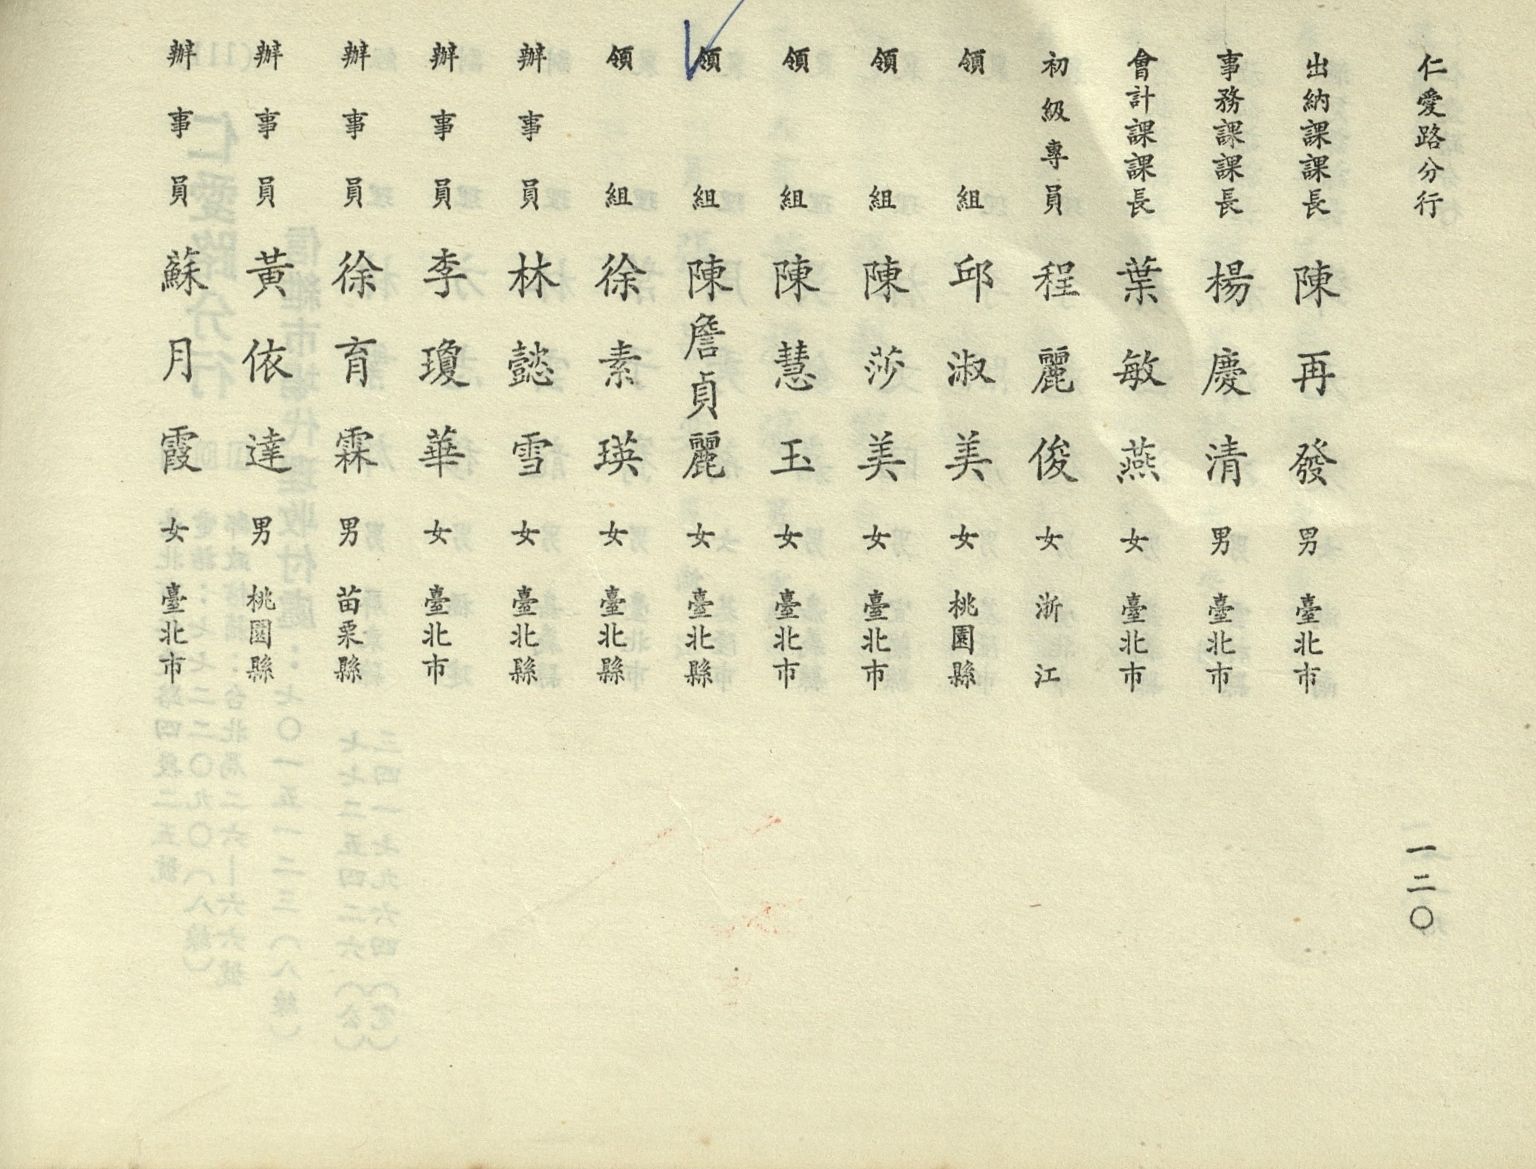 仁愛路分行
出納課課長 陳再發 男 臺北市
事務課課長 楊慶清 男 臺北市
會計課課長 葉敏燕 女 臺北市
初級專員 程麗俊 女 浙江
領組 邱淑美 女 桃園縣
領組 陳莎美 女 臺北市
領組 陳慧玉 女 臺北市
領組 陳詹貞麗 女 臺北縣
領組 徐素瑛 女 臺北縣
辦事員 林懿雪 女 臺北縣
辦事員 李瓊華 女 臺北市
辦事員 徐育霖 男 苗栗縣
辦事員 黃依達 男 桃園縣
辦事員 蘇月霞 女 臺北市
一二〇